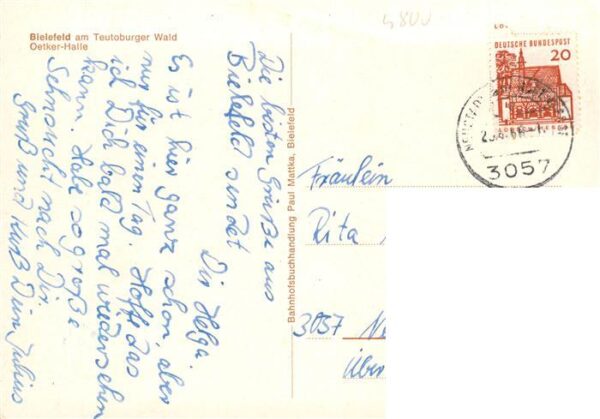 Bielefeld am Teutoburger Wald
Oetker-Halle
Die besten Grüße aus
Bielefeld sindet
Dir Helga.
Es ist hier ganz schön, aber
nur für einen Tag. Hoffe das
ich Dich bald mal wiedersehen
kann. Habe so große
Sehnsucht nach Dir.
Gruß und Kuß Dein Julius
Bahnhofsbuchhandlung Paul Mattka, Bielefeld
4800
DEUTSCHE BUNDESPOST
20
3057
Fräulein
Rita
3057
Über